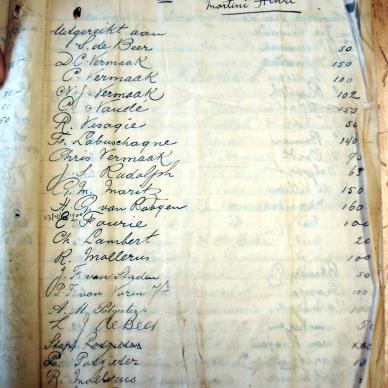 Martini Henri
Uitgereikt aan
S. de Beer 50
D.C. Vermaak 150
C. Vermaak 100
C.J. Vermaak 102
C. Naude 150
R. Visagie 50
Fr. Labuschagne 140
Chris Vermaak 70
J. S. Rudolph 65
G. M. Maritz 150
H. G. van Rooyen 160
C. Fourie 100
Ch. Lambert 20
R. Mollerus 100
J. F. van Staden
P. F. van Vuren
A. M. Potgieter
Z. de Beer
Potgieter
R. Mollerus